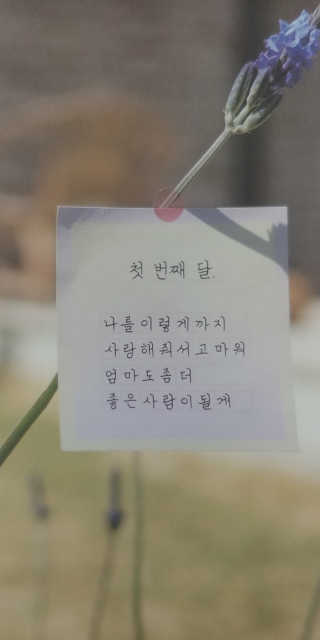 첫 번째 달.
나를 이렇게까지
사랑해줘서 고마워
엄마도 좀 더
좋은 사람이 될게